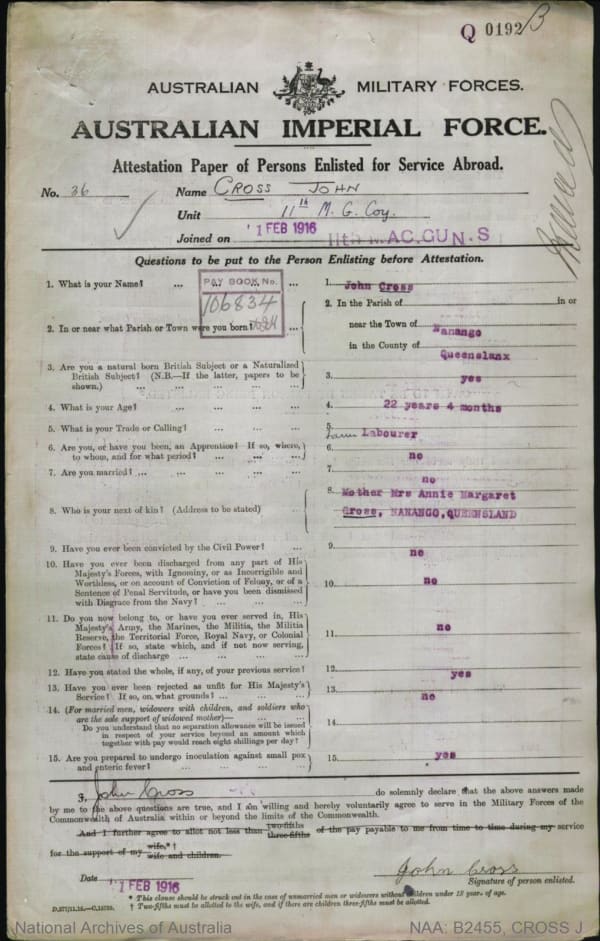 Q 0192 B
AUSTRALIAN MILITARY FORCES.
AUSTRALIAN IMPERIAL FORCE.
Attestation Paper of Persons Enlisted for Service Abroad.
No. 36 Name CROSS JOHN
Unit 11th M. G. Coy.
Joined on 1 FEB 1916 11th MAC.GUN.S
Questions to be put to the Person Enlisting before Attestation.
1. What is your Name? ... ... 1. John Cross
PAY BOOK No.
106834
2. In or near what Parish or Town were you born? ... 2. In the Parish of in or
near the Town of Nanango
in the County of Queenslanx
3. Are you a natural born British Subject or a Naturalized
British Subject? (N.B.—If the latter, papers to be
shown.) ... ... ... ... 3. yes
4. What is your Age? ... ... ... ... 4. 22 years 4 months
5. What is your Trade or Calling? ... ... ... 5. Farm Labourer
6. Are you, or have you been, an Apprentice? If so, where,
to whom, and for what period? ... ... ... 6. no
7. Are you married? ... ... ... ... 7. no
8. Who is your next of kin? (Address to be stated) ... 8. Mother Mrs Annie Margaret
Cross, NANANGO,QUEENSLAND
9. Have you ever been convicted by the Civil Power? ... 9. no
10. Have you ever been discharged from any part of His
Majesty's Forces, with Ignominy, or as Incorrigible and
Worthless, or on account of Conviction of Felony, or of a
Sentence of Penal Servitude, or have you been dismissed
with Disgrace from the Navy? ... ... ... 10. no
11. Do you now belong to, or have you ever served in, His
Majesty's Army, the Marines, the Militia, the Militia
Reserve, the Territorial Force, Royal Navy, or Colonial
Forces? If so, state which, and if not now serving,
state cause of discharge ... ... ... ... 11. no
12. Have you stated the whole, if any, of your previous service? 12. yes
13. Have you ever been rejected as unfit for His Majesty's
Service? If so, on what grounds? ... ... ... 13. no
14. (For married men, widowers with children, and soldiers who
are the sole support of widowed mother)— ... ...
Do you understand that no separation allowance will be issued
in respect of your service beyond an amount which
together with pay would reach eight shillings per day? 14.
15. Are you prepared to undergo inoculation against small pox
and enteric fever? ... ... ... ... 15. yes
I, John Cross do solemnly declare that the above answers made
by me to the above questions are true, and I am willing and hereby voluntarily agree to serve in the Military Forces of the
Commonwealth of Australia within or beyond the limits of the Commonwealth.
And I further agree to allot not less than two-fifths three-fifths of the pay payable to me from time to time during my service
for the support of my wife,*† wife and children.
Date 1 FEB 1916 John Cross
Signature of person enlisted.
* This clause should be struck out in the case of unmarried men or widowers without children under 18 years of age.
† Two-fifths must be allotted to the wife, and if there are children three-fifths must be allotted.
National Archives of Australia NAA: B2455, CROSS J